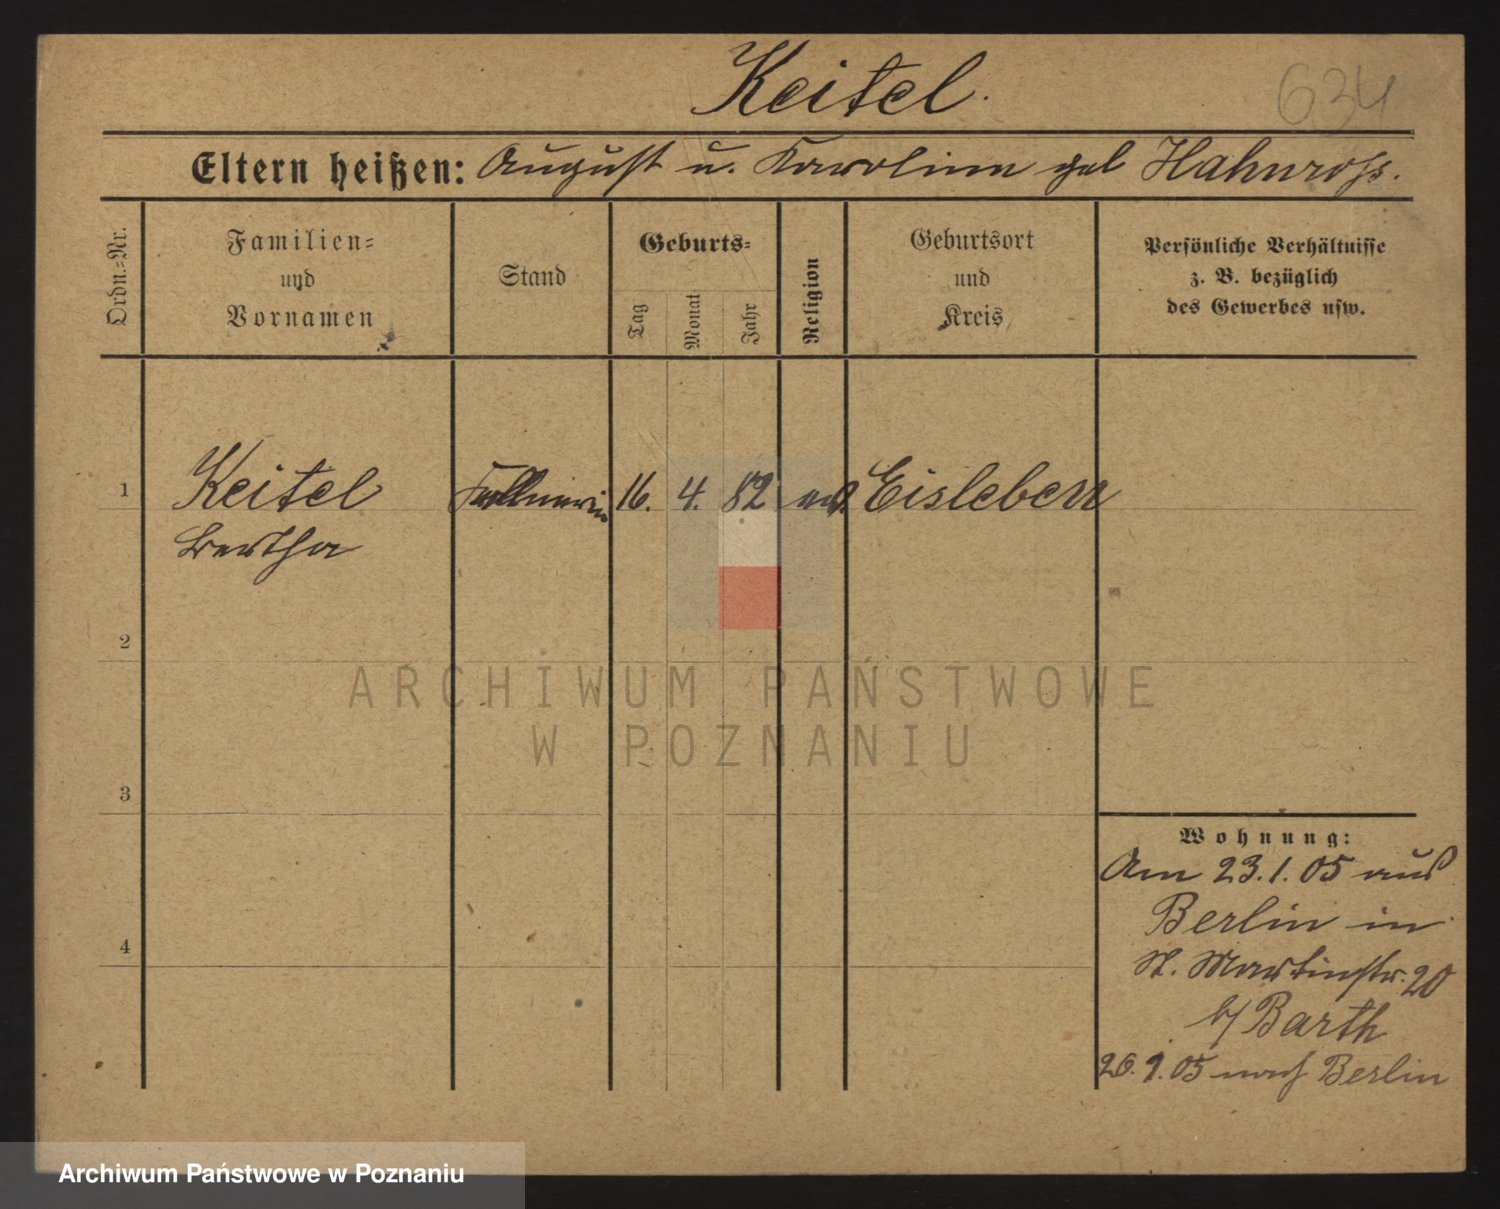 Keitel.
634
Eltern heißen: August u. Karoline geb Hahnroß.
Ordn.-Nr.
Familien-
und
Vornamen
Stand
Geburts-
Tag
Monat
Jahr
Religion
Geburtsort
und
Kreis
Persönliche Verhältnisse
z. B. bezüglich
des Gewerbes usw.
1
Keitel
Bertha
Kellnerin
16.
4.
82
ev.
Eisleben
2
3
4
ARCHIWUM PAŃSTWOWE
W POZNANIU
Wohnung:
Am 23.1.05 aus
Berlin in
St. Martinstr. 20
b/ Barth
26.1.05 nach Berlin
Archiwum Państwowe w Poznaniu